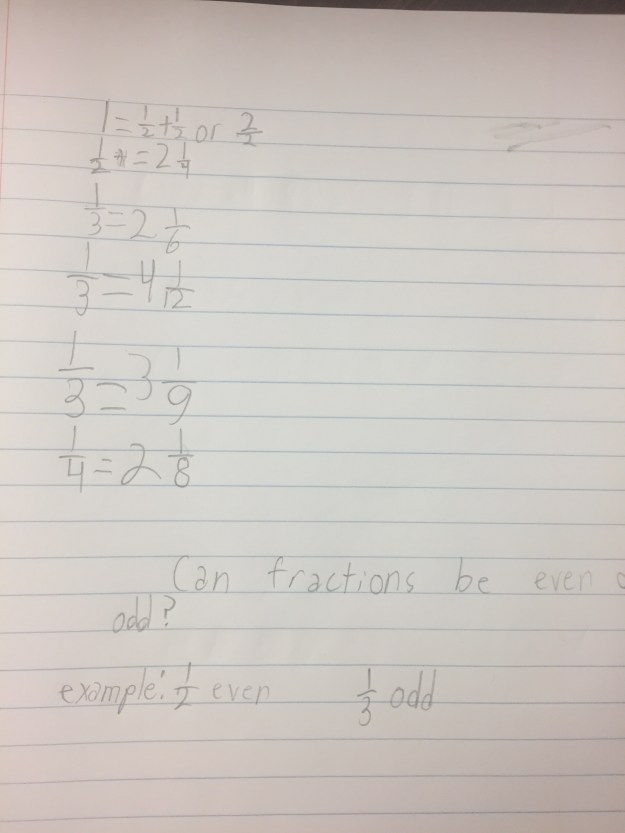 1 = 1/2 + 1/2 or 2/2
1/2 = 2 1/4
1/3 = 2 1/6
1/3 = 4 1/12
1/3 = 3 1/9
1/4 = 2 1/8
Can fractions be even
odd?
example: 1/2 even 1/3 odd